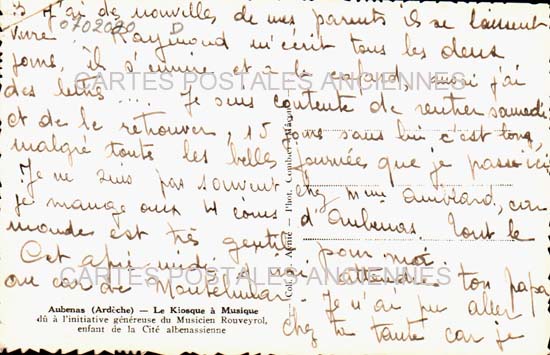 J'ai de nouvelles de mes parents ils se laissent
vivre. Raymond m'écrit tous les deux
0702000
jours, il s'ennuie et a le cafard, aussi j'ai
des lettres .... Je suis contente de rentrer samedi
CARTES POSTALES ANCIENNES
et de le retrouver, 15 jours sans lui c'est long,
malgré toutes les belles journées que je passe ici
Je ne suis pas souvent chez mme car
je mange aux 4 coins d'Aubenas. Tout le
monde est très gentil pour moi.
Cet après-midi j'irai attendre ton papa
CARTES POSTALES ANCIENNES
au car de Montélimar. Je n'ai pu aller
chez ta tante car je
Aubenas (Ardèche) — Le Kiosque à Musique
dû à l'initiative généreuse du Musicien Rouveyrol,
enfant de la Cité albenassienne
Phot. Combier Mâcon